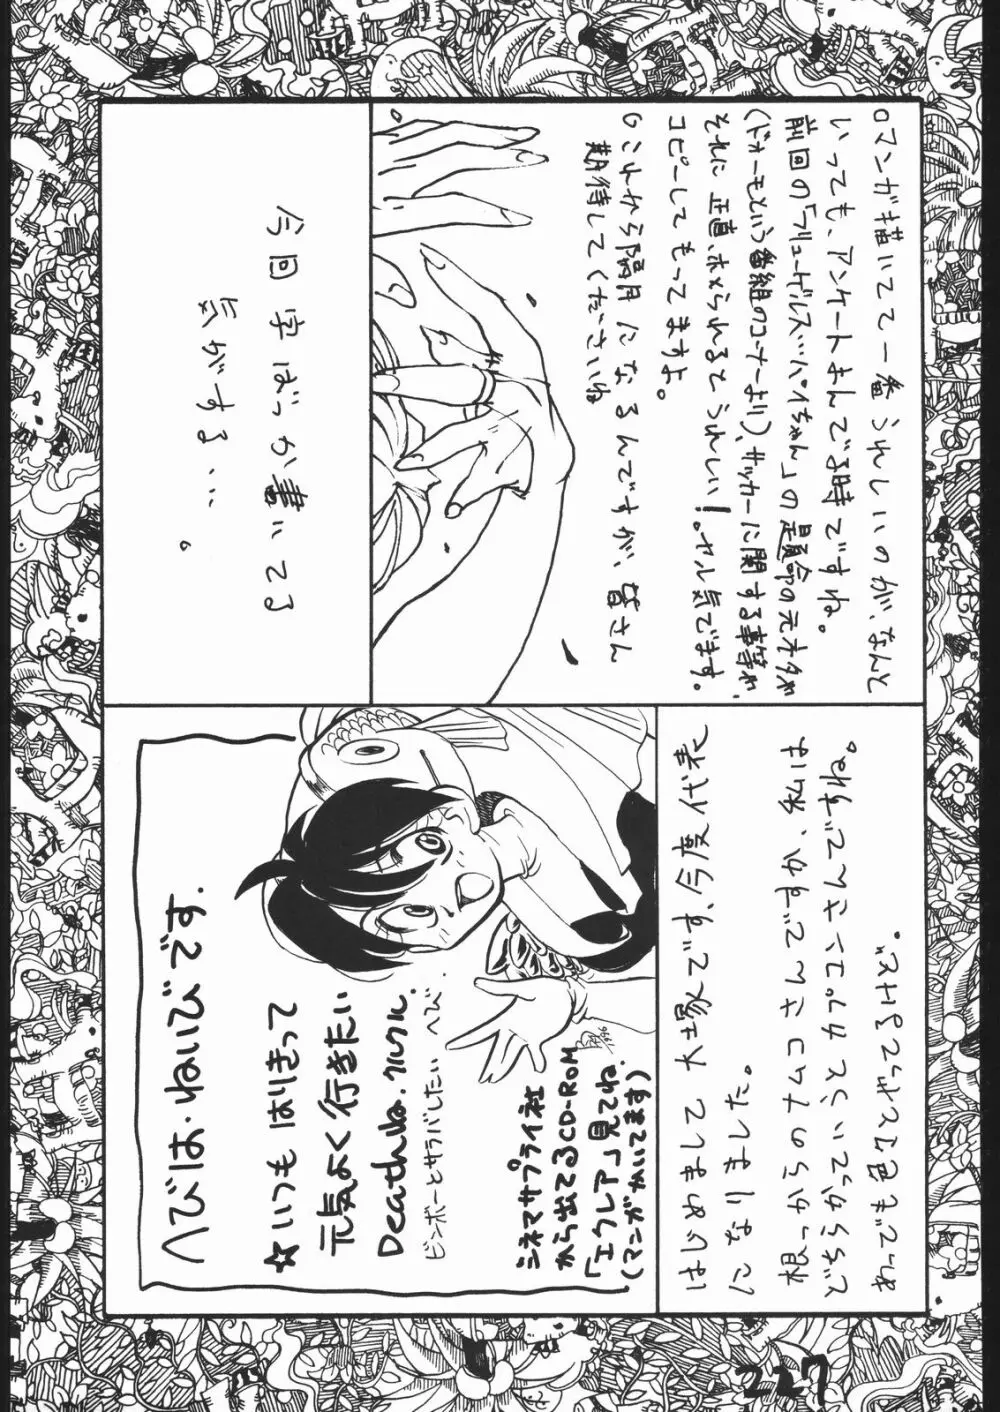 ロマンガ描いてて一番うれしいのが、なんと
いっても、アンケートまんでる時ですね。
前回の「ブリューゲルスッパイちゃん」の
元オタクや
(ドォーモという番組のコーナーより)、サッカーに関する事等が、
それに正直、ホメられるとうれしい!。ヤル気でます。
コピーしてもってますよ。
これから隔月になるんですが、皆さん
期待してくださいね
今回字ばっか書いてる
気がする…。
はじめまして大塚です、今度代表
になりました。
根っからのナムコさんでです
はね、
どちらかっていうとカプコンさんでですね。
あってでも色々とやってるけど。
へびは・ねいびです.
☆いつもはりきって
元気よく行きたい
Deathね.クルクル.
ビンボーとサラバしたいへび.
シネマサプライ社
から出てるCD-ROM
「エクレア」見てね.
(マンガかいてます)
227